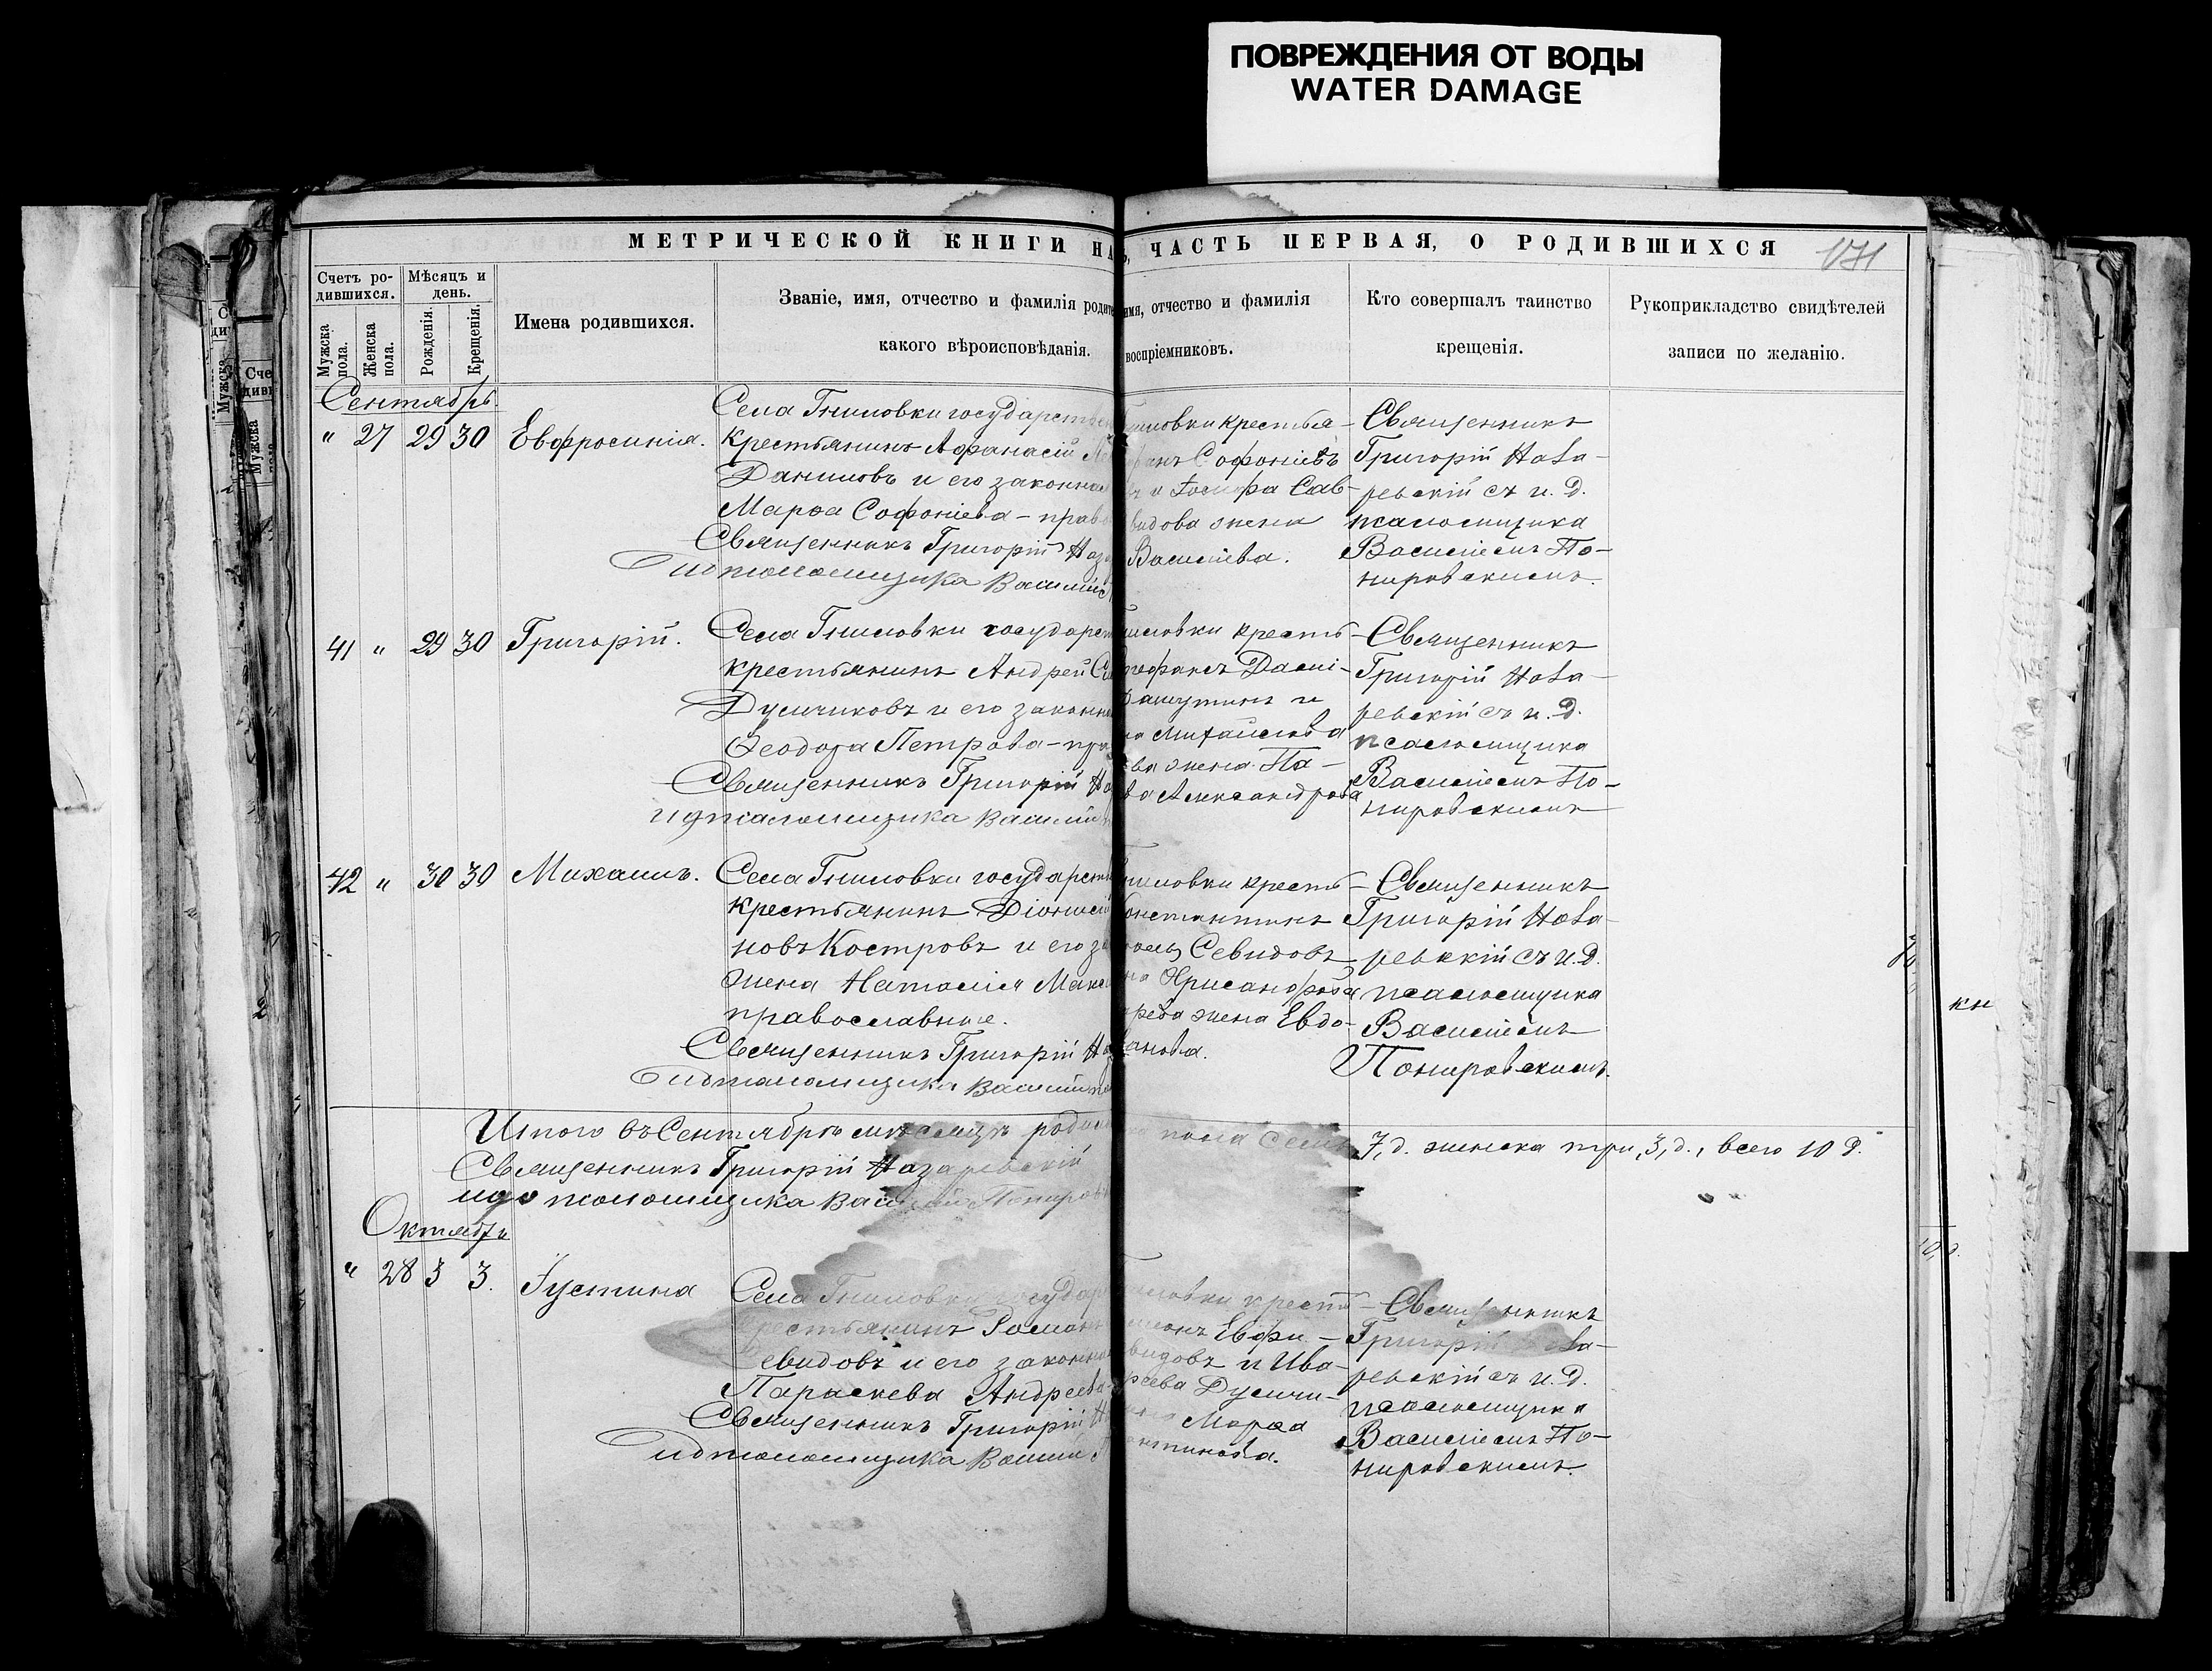 ПОВРЕЖДЕНИЯ ОТ ВОДЫ
WATER DAMAGE
МЕТРИЧЕСКОЙ КНИГИ НА
ЧАСТЬ ПЕРВАЯ, О РОДИВШИХСЯ
171
Счетъ ро-
дившихся.
Мужска пола.
Женска пола.
Мѣсяцъ и
день.
Рожденія.
Крещенія.
Имена родившихся.
Званіе, имя, отчество и фамилія родите
какого вѣроисповѣданія.
имя, отчество и фамилія
воспріемниковъ.
Кто совершалъ таинство
крещенія.
Рукоприкладство свидѣтелей
записи по желанію.
Сентябрь.
" 27 29 30 Евфросинія.
Села Гниловки государствен
крестьянинъ Афанасій
Даниловъ и его законная
Марѳа Софоніева - право
Священникъ Григорій Наза
И д псаломщика Василій
гниловки крестья-
Софоніевъ
и Іосифа Сав-
видова жена
Васильева.
Священникъ
Григорій Наза-
ревскій съ и. д.
псаломщика
Василіемъ По-
нировскимъ.
41 " 29 30 Григорій.
Села Гниловки государст
крестьянинъ Андрей
Думчиковъ и его законна
Ѳеодора Петрова - пра
Священникъ Григорій На
И д псаломщика Василій
ниловки кресть-
тефанъ Дани-
и
Михайлова
ва жена Па-
Александрова
Священникъ
Григорій Наза-
ревскій съ и. д.
псаломщика
Василіемъ По-
нировскимъ
42 " 30 30 Михаилъ.
Села Гниловки государств
крестьянинъ Діонисій
новъ Костровъ и его за
жена Наталія Макс
православные.
Священникъ Григорій На
И д псаломщика Василій
ниловки кресть-
онстантинъ
Севидовъ
Хрисанфова
жена Евдо-
анова.
Священникъ
Григорій Наза-
ревскій съ и. д.
псаломщика
Василіемъ
Понировскимъ.
Итого въ Сентябрѣ мѣсяцѣ родил
пола семь
7, д. женска три, 3, д., всего 10 д.
Священникъ Григорій Назаревскій
и д псаломщика Василій Пониров
Октябрь
" 28 3 3. Іустина
Села Гниловки государ
крестьянинъ Романъ
Севидовъ и его законна
Параскева Андреева
Священникъ Григорій На
И д псаломщика Василій
ниловки кресть-
Евфи-
видовъ и Ива-
реева Думчи-
Марѳа
антинова.
Священникъ
Григорій Наза-
ревскій съ и. д.
псаломщика
Василіемъ По-
нировскимъ.
кн